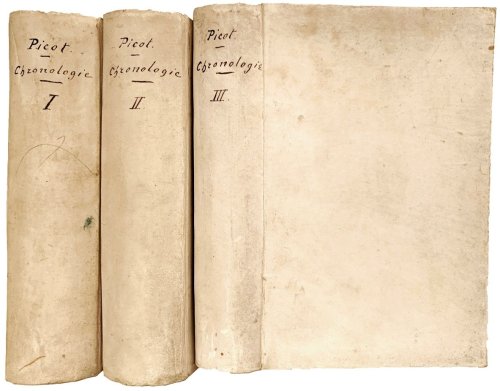 Picot.
Chronologie
I
Picot.
Chronologie
II
Picot.
Chronologie
III